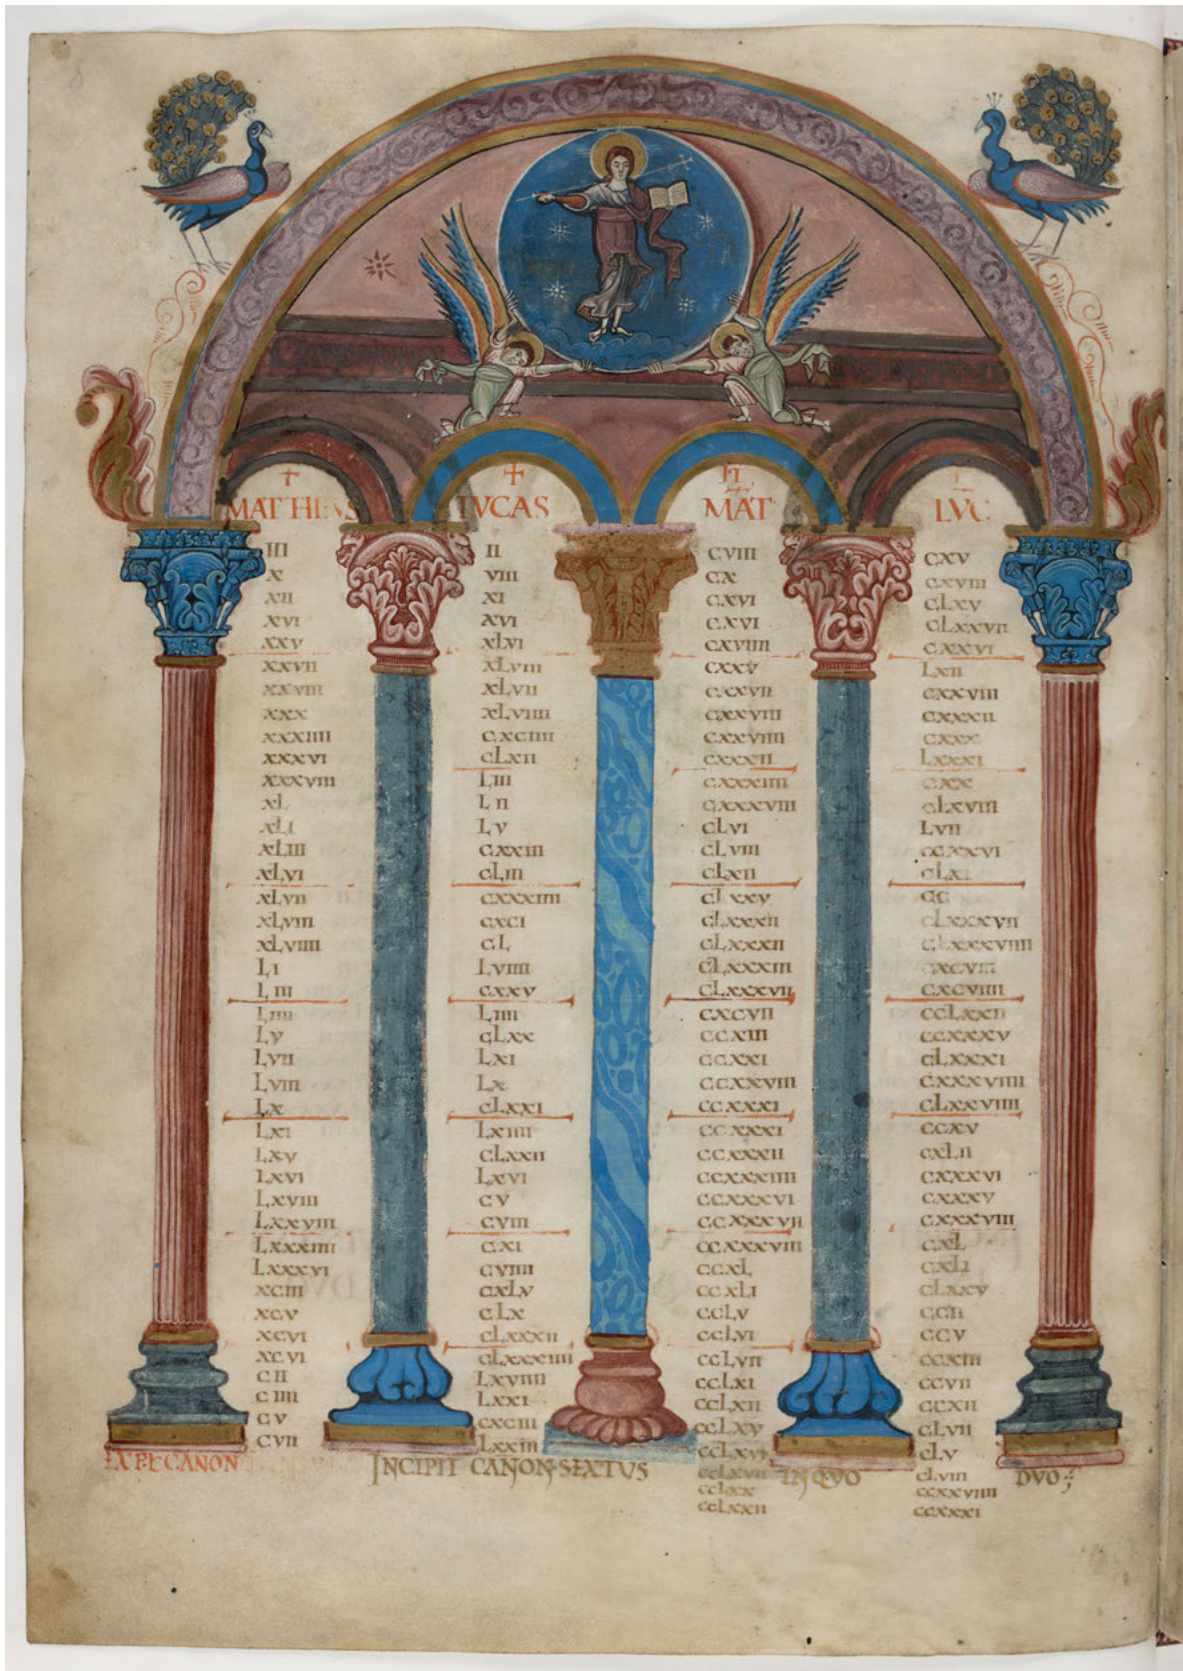 MATTHEVS
III
X
XII
XVI
XXV
XXVII
XXVIII
XXX
XXXIIII
XXXVI
XXXVIII
XL
XLI
XLIII
XLVI
XLVII
XLVIII
XLVIIII
LI
LIII
LIIII
LV
LVII
LVIII
LX
LXI
LXV
LXVI
LXVIII
LXXVIII
LXXXIIII
LXXXVI
XCIII
XCV
XCVI
XCVI
CII
CIIII
CV
CVII
LVCAS
II
VIII
XI
XVI
XLVI
XLVIII
XLVII
XLVIIII
CXCIIII
CLXII
LIII
LII
LV
CXXIII
CLIII
CXXXIIII
CXCI
CL
LVIIII
CXXV
LIIII
CLXX
LXI
LX
CLXXI
LXIIII
CLXXII
LXVI
CV
CVIII
CXI
CVIIII
CXLV
CLX
CLXXXII
CLXXXIIII
LXVIIII
LXXI
CXCIII
LXXIII
MAT
CVIII
CX
CXVI
CXVI
CXVIIII
CXXV
CXXVII
CXXVIII
CXXVIIII
CXXXII
CXXXIIII
CXXXVIII
CLVI
CLVIII
CLXII
CLXXV
CLXXXII
CLXXXII
CLXXXIII
CLXXXVII
CXCVII
CCXIII
CCXXI
CCXXVIII
CCXXXI
CCXXXI
CCXXXII
CCXXXIIII
CCXXXVI
CCXXXVII
CCXXXVIII
CCXL
CCXLI
CCLV
CCLVI
CCLVII
CCLXI
CCLXII
CCLXV
CCLXVI
CCLXVII
CCLXX
CCLXXII
LVC
CXV
CXVIII
CLXV
CLXXVII
CXXVI
LXII
CXXVIII
CXXXII
CXXX
LXXXI
CXX
CLXVIII
LVII
CCXXVI
CLXI
CC
CLXXXVII
CLXXXVIIII
CXCVIII
CXCVIIII
CCLXXII
CCXXXV
CLXXXI
CXXXVIIII
CLXXVIIII
CCXV
CXLII
CXXXVI
CXXXV
CXXXVIII
CXL
CXLI
CLXXV
CCII
CCV
CCXIII
CCVII
CCXII
CLVII
CLV
CLVIII
CCXXVIIII
CCXXXI
EXPLCANON
INCIPIT CANON SEXTUS IN QUO DVO